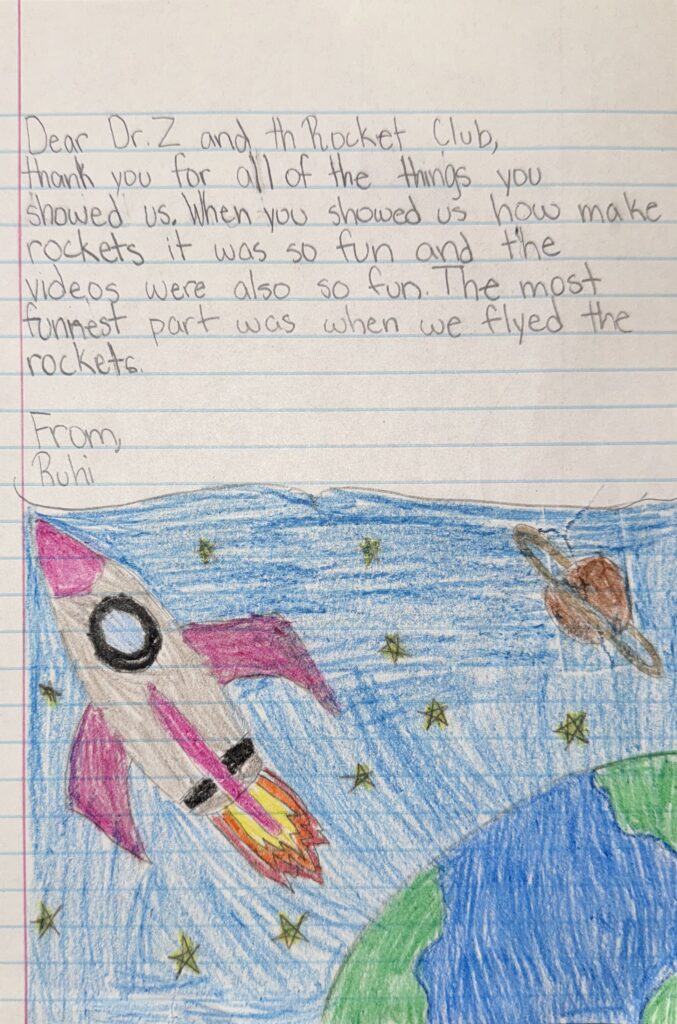 Dear Dr. Z and th Rocket Club,
thank you for all of the things you
showed us. When you showed us how make
rockets it was so fun and the
videos were also so fun. The most
funnest part was when we flyed the
rockets.
From,
Ruhi